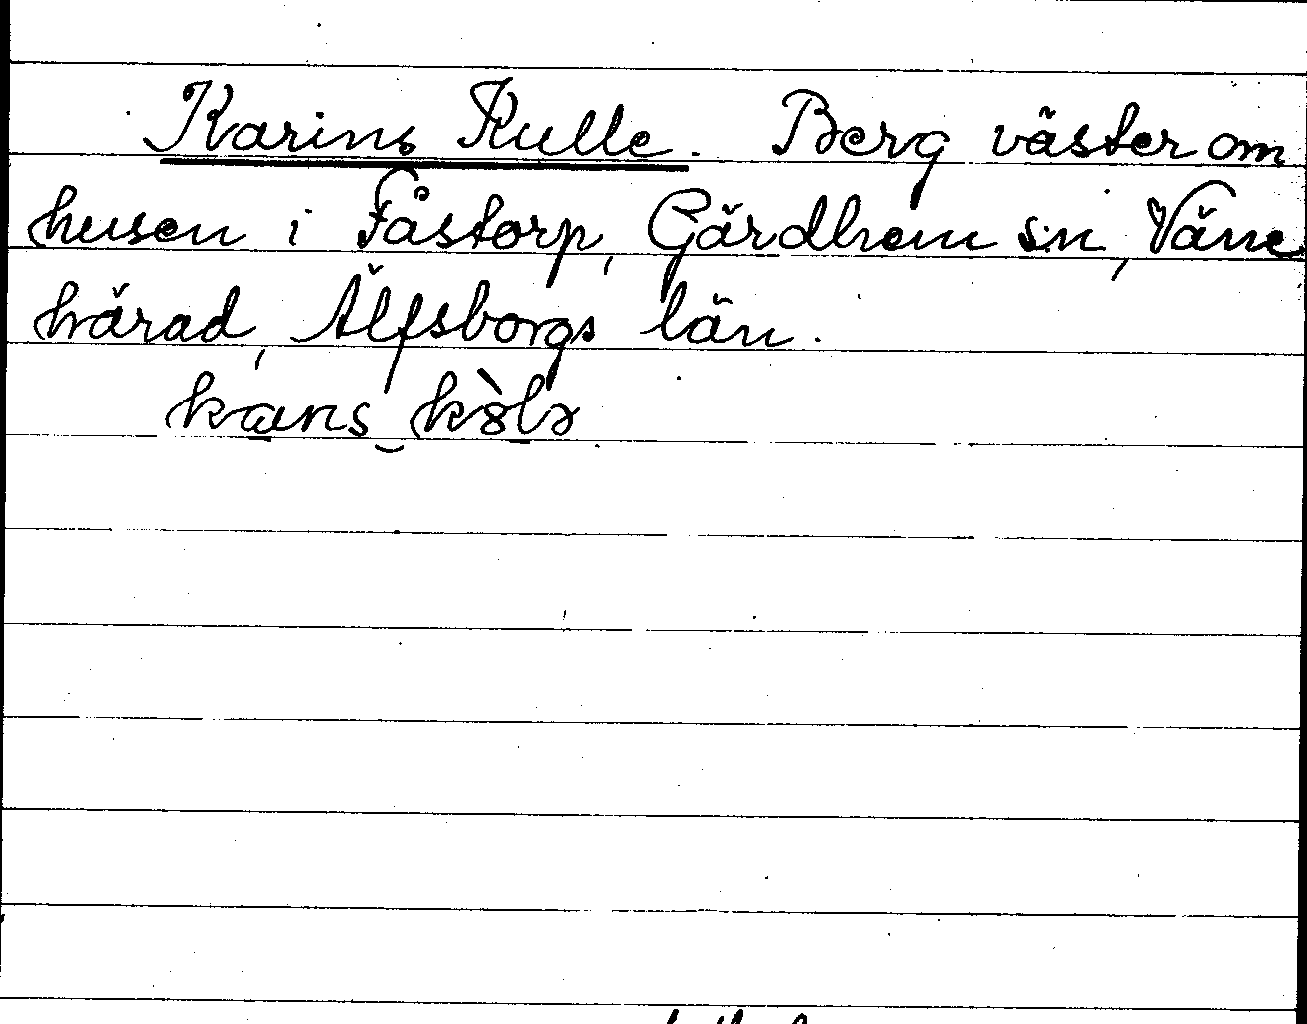 Karins Kulle. Berg väster om
husen i Fåstorp, Gärdhem sn, Väne
härad, Älfsborgs län.